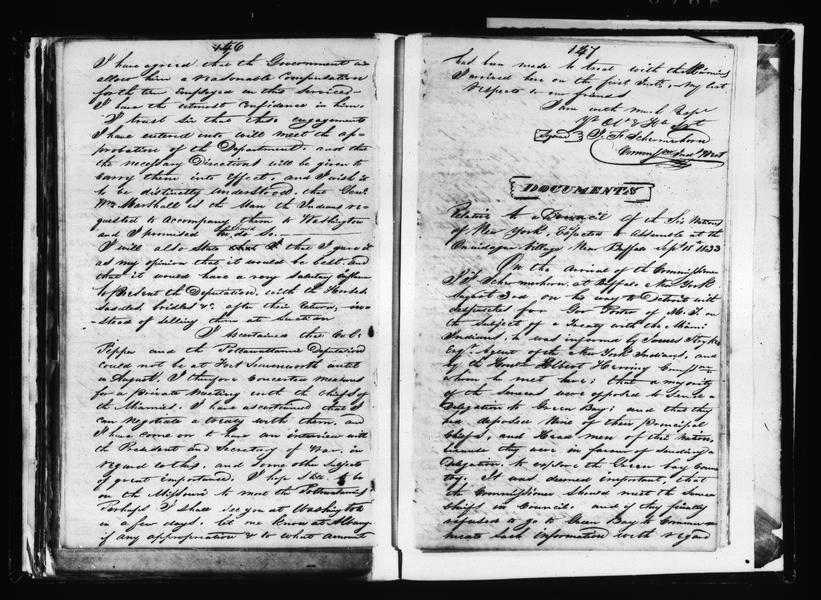 146
I have agreed that the Government
allow him a reasonable Compensation
for the time employed in this Service
I have the utmost Confidence in him.
I trust sir that these engagements
I have entered into will meet the ap-
probation of the Department, and that
the necessary Directions will be given to
carry them into effect, and I wish it
to be distinctly understood, that Genl.
Wm. Marshall is the Man the Indians re-
quested to accompany them to Washington
and I promised to do so.
I will also State that I gave it
as my opinion that it would be best, and
that it would have a very salutary
to present the Deputation, with the Horses
saddles, bridles &c. after their return, in-
stead of selling them at auction
I ascertained that Col.
Pepper and the Pottawattamie Deputation
could not be at Fort Leavenworth until
in August. I therefore concerted measures
for a private Meeting with the Chiefs of
the Miamies. I have ascertained that I
can negotiate a treaty with them, and
I have come on to have an interview with
the President and Secretary of War, in
regard to this, and some other subjects
of great importance. I hope still to be
on the Missouri to meet the Pottawatamies
Perhaps I shall see you at Washington
in a few days. let me know at Albany
if any appropriation & to what amount
147
had been made to treat with the Miamies
I arrived here on the first Inst. My best
respects to our friends
I am with much Respt.
Yr. Obt. & Hle. Svt.
Signed J. F. Schermerhorn
Commissr. Indn. West
DOCUMENTS
Relative to a Council of the Six Nations
of New York, Expected to Assemble at the
Onondagua Village Near Buffalo Sept. 1833
On the arrival of the Commissioner
J. F. Schermerhorn at Buffalo New York
August 3rd, on his way to Detroit with
despatches for Gov. Porter of M. T. on
the subject of a Treaty with the Miami
Indians, he was informed by James Stryker
Esqr. Agent of the New York Indians, and
by the Honble. Elbert Herring
whom he met here; that a majority
of the Senecas were opposed to send a
Delegation to Green Bay; and that they
had deposed Nine of their Principal
Chiefs, and Head men of their Nation,
because they were in favour of sending a
Delegation, to explore the Green bay Coun
try. It was deemed important, that
the Commissioner should meet the Seneca
Chiefs in Council: and if they finally
refused to go to Green Bay to Commu-
nicate such information with regard